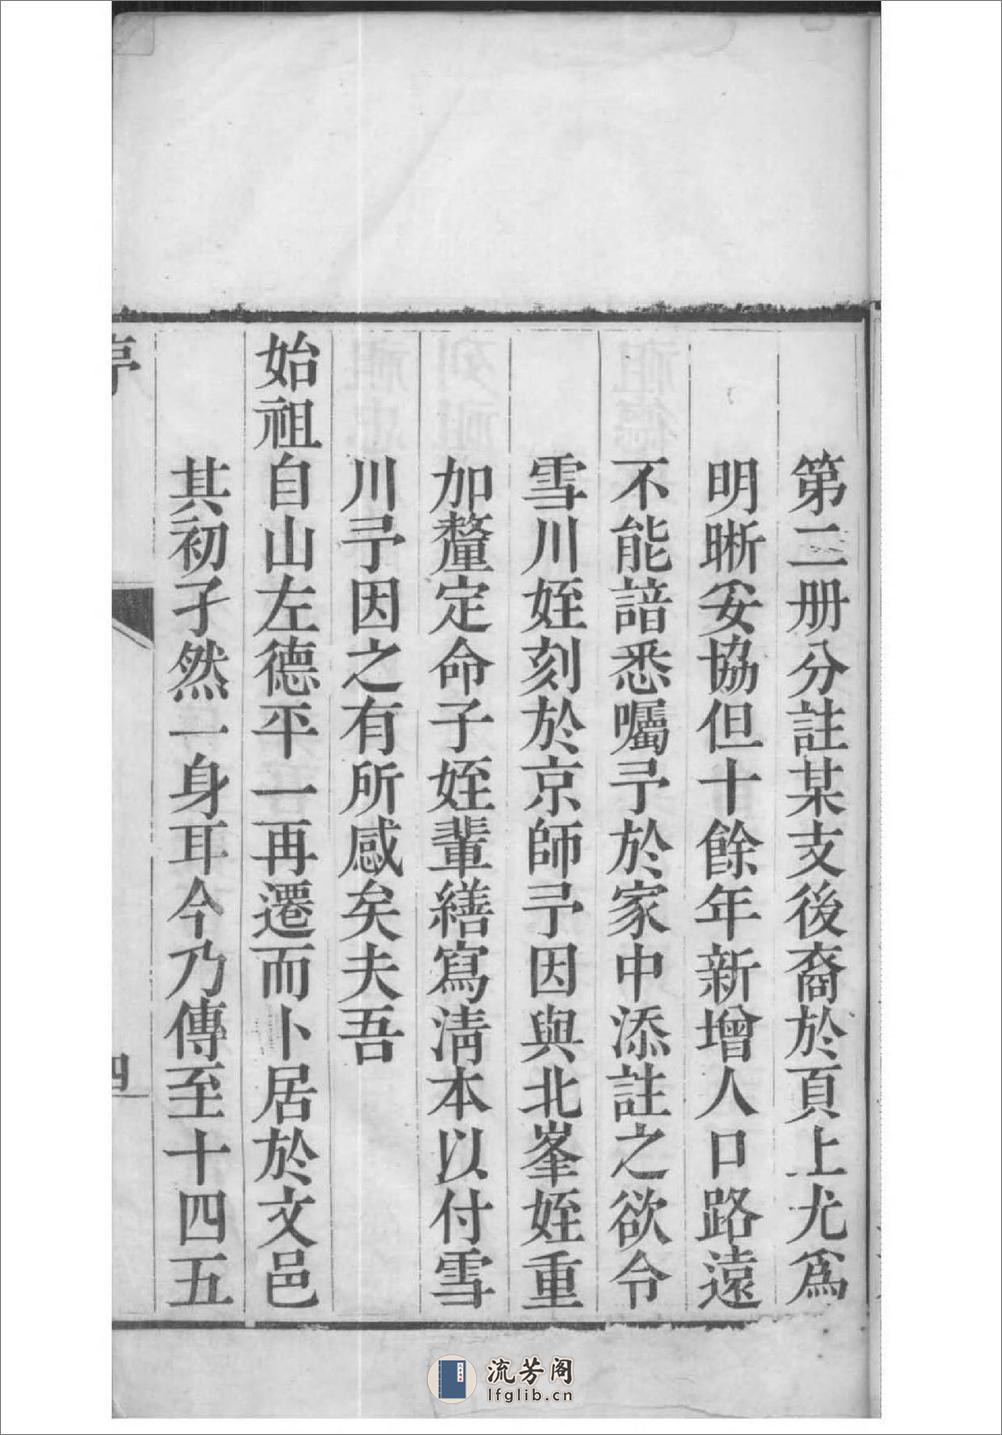 第二册分註某支後裔於頁上尤爲
明晰妥協但十餘年新增人口路遠
不能諳悉囑予於家中添註之欲令
雪川姪刻於京師予因與北峯姪重
加釐定命子姪輩繕寫清本以付雪
川予因之有所感矣夫吾
始祖自山左德平一再遷而卜居於文邑
其初孑然一身耳今乃傳至十四五
序
四
流芳阁
lfglib.cn